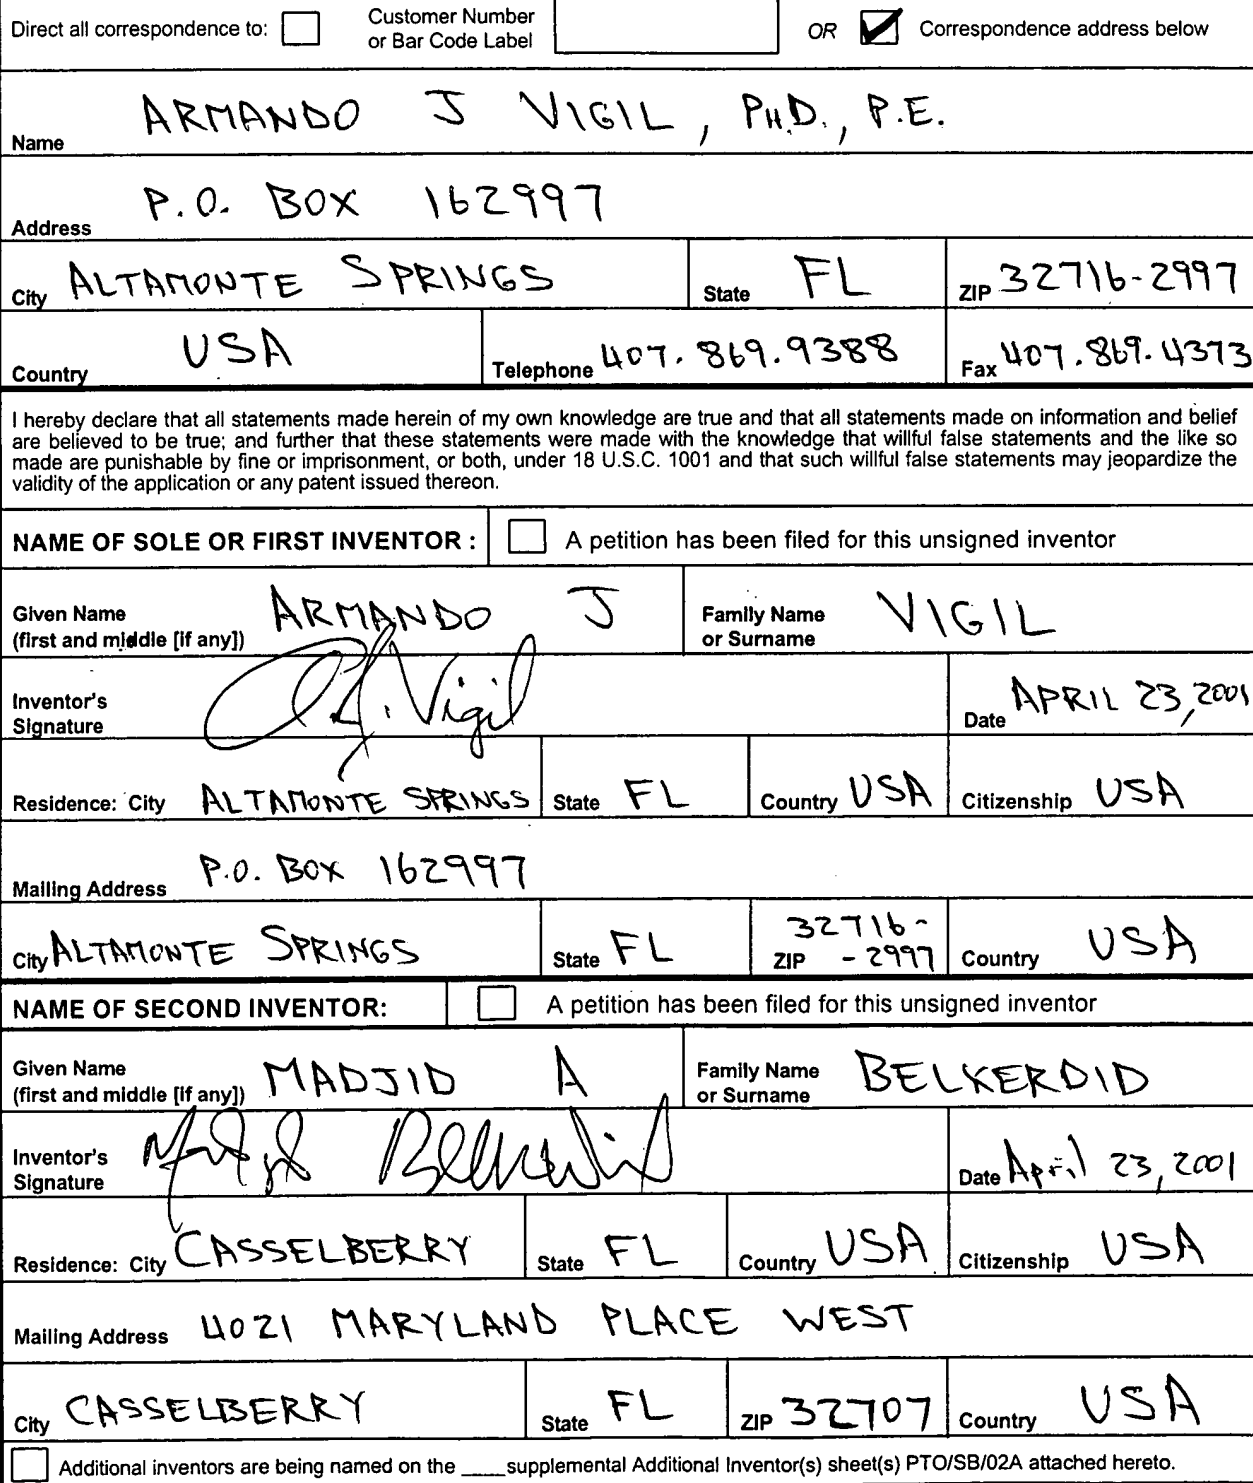 Direct all correspondence to: Customer Number or Bar Code Label OR Correspondence address below
Name ARMANDO J VIGIL, PH.D., P.E.
Address P.O. BOX 162997
City ALTAMONTE SPRINGS State FL ZIP 32716-2997
Country USA Telephone 407.869.9388 Fax 407.869.4373
I hereby declare that all statements made herein of my own knowledge are true and that all statements made on information and belief
are believed to be true; and further that these statements were made with the knowledge that willful false statements and the like so
made are punishable by fine or imprisonment, or both, under 18 U.S.C. 1001 and that such willful false statements may jeopardize the
validity of the application or any patent issued thereon.
NAME OF SOLE OR FIRST INVENTOR : A petition has been filed for this unsigned inventor
Given Name (first and middle [if any]) ARMANDO J Family Name or Surname VIGIL
Inventor's Signature A.J. Vigil Date APRIL 23, 2001
Residence: City ALTAMONTE SPRINGS State FL Country USA Citizenship USA
Mailing Address P.O. BOX 162997
City ALTAMONTE SPRINGS State FL ZIP 32716- - 2997 Country USA
NAME OF SECOND INVENTOR: A petition has been filed for this unsigned inventor
Given Name (first and middle [if any]) MADJID A Family Name or Surname BELKERDID
Inventor's Signature Madjid Belkerdid Date April 23, 2001
Residence: City CASSELBERRY State FL Country USA Citizenship USA
Mailing Address 4021 MARYLAND PLACE WEST
City CASSELBERRY State FL ZIP 32707 Country USA
Additional inventors are being named on the ____supplemental Additional Inventor(s) sheet(s) PTO/SB/02A attached hereto.